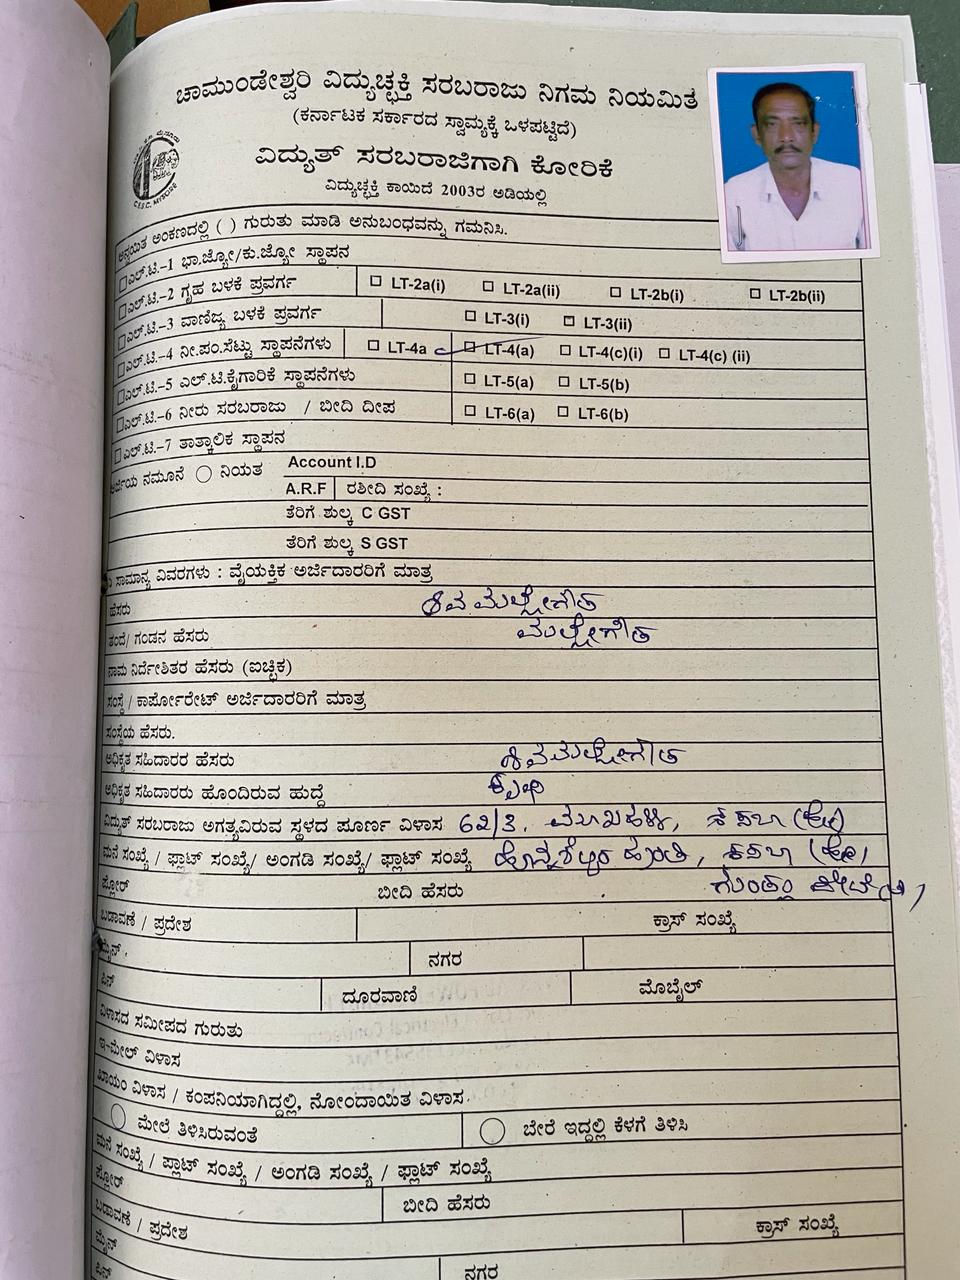 ಚಾಮುಂಡೇಶ್ವರಿ ವಿದ್ಯುಚ್ಛಕ್ತಿ ಸರಬರಾಜು ನಿಗಮ ನಿಯಮಿತ
(ಕರ್ನಾಟಕ ಸರ್ಕಾರದ ಸ್ವಾಮ್ಯಕ್ಕೆ ಒಳಪಟ್ಟಿದೆ)
ವಿದ್ಯುತ್ ಸರಬರಾಜಿಗಾಗಿ ಕೋರಿಕೆ
ವಿದ್ಯುಚ್ಛಕ್ತಿ ಕಾಯಿದೆ 2003ರ ಅಡಿಯಲ್ಲಿ
C.E.S.C. MYSORE
ಅನ್ವಯಿತ ಅಂಕಣದಲ್ಲಿ ( ) ಗುರುತು ಮಾಡಿ ಅನುಬಂಧವನ್ನು ಗಮನಿಸಿ.
ಎಲ್.ಟಿ.-1 ಭಾ.ಜ್ಯೋ/ಕು.ಜ್ಯೋ ಸ್ಥಾಪನ
ಎಲ್.ಟಿ.-2 ಗೃಹ ಬಳಕೆ ಪ್ರವರ್ಗ LT-2a(i) LT-2a(ii) LT-2b(i) LT-2b(ii)
ಎಲ್.ಟಿ.-3 ವಾಣಿಜ್ಯ ಬಳಕೆ ಪ್ರವರ್ಗ LT-3(i) LT-3(ii)
ಎಲ್.ಟಿ.-4 ನೀ.ಪಂ.ಸೆಟ್ಟು ಸ್ಥಾಪನೆಗಳು LT-4a LT-4(a) LT-4(c)(i) LT-4(c) (ii)
ಎಲ್.ಟಿ.-5 ಎಲ್.ಟಿ.ಕೈಗಾರಿಕೆ ಸ್ಥಾಪನೆಗಳು LT-5(a) LT-5(b)
ಎಲ್.ಟಿ.-6 ನೀರು ಸರಬರಾಜು / ಬೀದಿ ದೀಪ LT-6(a) LT-6(b)
ಎಲ್.ಟಿ.-7 ತಾತ್ಕಾಲಿಕ ಸ್ಥಾಪನ
ಅರ್ಜಿಯ ನಮೂನೆ ನಿಯತ Account I.D
A.R.F ರಶೀದಿ ಸಂಖ್ಯೆ :
ತೆರಿಗೆ ಶುಲ್ಕ C GST
ತೆರಿಗೆ ಶುಲ್ಕ S GST
ಸಾಮಾನ್ಯ ವಿವರಗಳು : ವೈಯಕ್ತಿಕ ಅರ್ಜಿದಾರರಿಗೆ ಮಾತ್ರ
ಹೆಸರು ಶಿವಮಲ್ಲೇಗೌಡ
ತಂದೆ/ ಗಂಡನ ಹೆಸರು ಮಲ್ಲೇಗೌಡ
ನಾಮ ನಿರ್ದೇಶಿತರ ಹೆಸರು (ಐಚ್ಛಿಕ)
ಸಂಸ್ಥೆ / ಕಾರ್ಪೋರೇಟ್ ಅರ್ಜಿದಾರರಿಗೆ ಮಾತ್ರ
ಸಂಸ್ಥೆಯ ಹೆಸರು.
ಅಧಿಕೃತ ಸಹಿದಾರರ ಹೆಸರು ಶಿವಮಲ್ಲೇಗೌಡ
ಅಧಿಕೃತ ಸಹಿದಾರರು ಹೊಂದಿರುವ ಹುದ್ದೆ ಕೃಷಿ
ವಿದ್ಯುತ್ ಸರಬರಾಜು ಅಗತ್ಯವಿರುವ ಸ್ಥಳದ ಪೂರ್ಣ ವಿಳಾಸ 62/3, ಕಸಬಾ (ಹೋ)
ಮನೆ ಸಂಖ್ಯೆ / ಫ್ಲಾಟ್ ಸಂಖ್ಯೆ/ ಅಂಗಡಿ ಸಂಖ್ಯೆ/ ಫ್ಲಾಟ್ ಸಂಖ್ಯೆ ಕಸಬಾ (ಹೋ)
ಫ್ಲೋರ್ ಬೀದಿ ಹೆಸರು ಗುಂಡ್ಲುಪೇಟೆ (ತಾ)
ಬಡಾವಣೆ / ಪ್ರದೇಶ ಕ್ರಾಸ್ ಸಂಖ್ಯೆ
ಮೈನ್. ನಗರ
ಪಿನ್ ದೂರವಾಣಿ ಮೊಬೈಲ್
ವಿಳಾಸದ ಸಮೀಪದ ಗುರುತು
ಇ-ಮೇಲ್ ವಿಳಾಸ
ಖಾಯಂ ವಿಳಾಸ / ಕಂಪನಿಯಾಗಿದ್ದಲ್ಲಿ, ನೋಂದಾಯಿತ ವಿಳಾಸ.
ಮೇಲೆ ತಿಳಿಸಿರುವಂತೆ ಬೇರೆ ಇದ್ದಲ್ಲಿ ಕೆಳಗೆ ತಿಳಿಸಿ
ಮನೆ ಸಂಖ್ಯೆ / ಪ್ಲಾಟ್ ಸಂಖ್ಯೆ / ಅಂಗಡಿ ಸಂಖ್ಯೆ / ಫ್ಲಾಟ್ ಸಂಖ್ಯೆ
ಫ್ಲೋರ್ ಬೀದಿ ಹೆಸರು
ಬಡಾವಣೆ / ಪ್ರದೇಶ ಕ್ರಾಸ್ ಸಂಖ್ಯೆ
ಮೈನ್
ಪಿನ್ ನಗರ